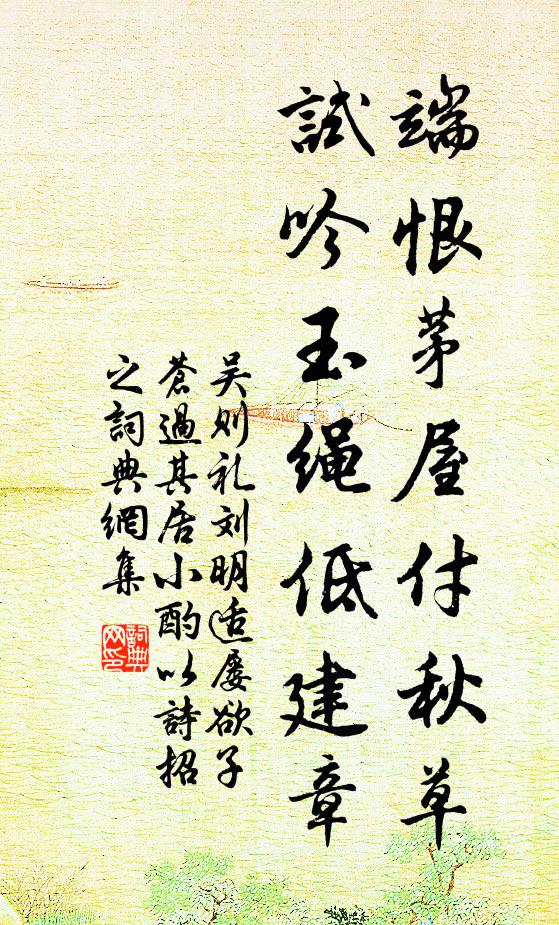 端恨茅屋付秋草
試吟玉绳低建章
吴则礼刘明适屡欲子
蒼過其居小酌以詩招
之詞典網集
詞典
网印